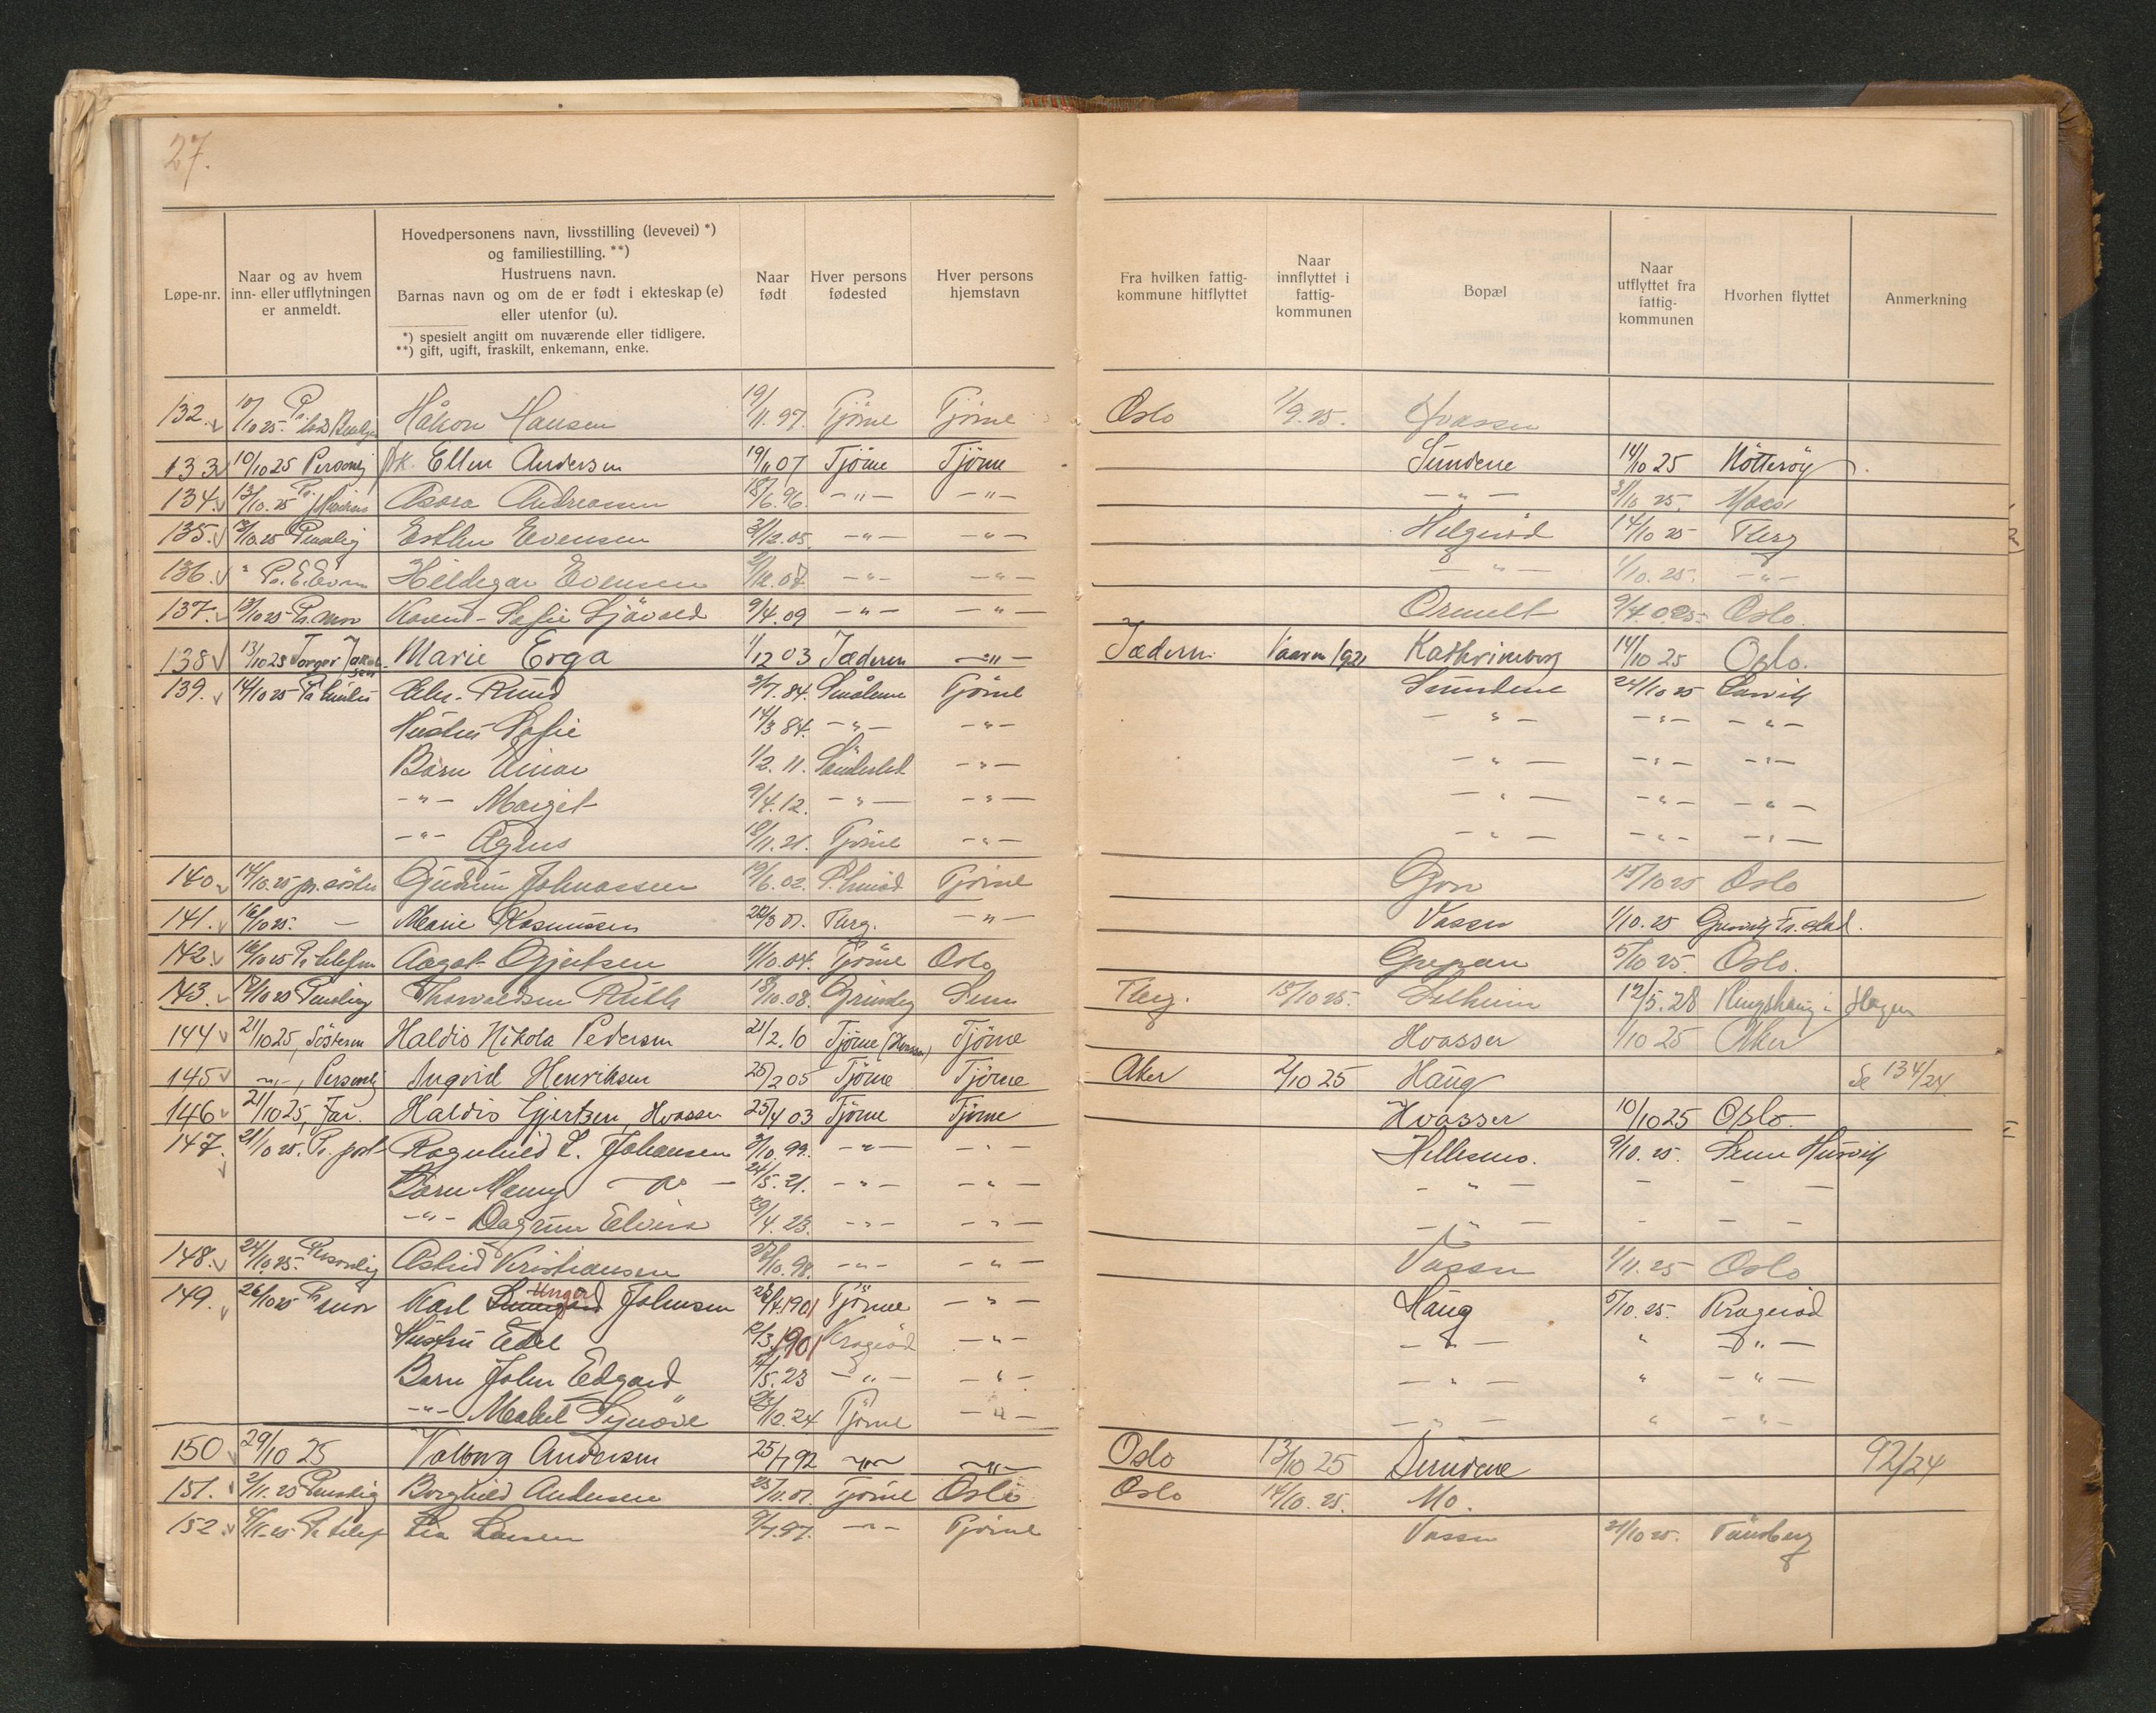 27.
Løpe-nr.
Naar og av hvem
inn- eller utflytningen
er anmeldt.
Hovedpersonens navn, livsstilling (levevei) *)
og familiestilling. **)
Hustruens navn.
Barnas navn og om de er født i ekteskap (e)
eller utenfor (u).
*) spesielt angitt om nuværende eller tidligere.
**) gift, ugift, fraskilt, enkemann, enke.
Naar
født
Hver persons
fødested
Hver persons
hjemstavn
Fra hvilken fattig-
kommune hitflyttet
Naar
innflyttet i
fattig-
kommunen
Bopæl
Naar
utflyttet fra
fattig-
kommunen
Hvorhen flyttet
Anmerkning
132. 10/10 25. Pr. Håkon Hansen 19/11. 97. Tjöme Tjöme Oslo 1/9. 25. Hvasser
133 10/10 25 Personlig frk. Ellen Andersen 19/11 07 Tjöme Tjöme Sundene 14/10 25 Nötteröy
134. 13/10. 25 Pr. Andreassen 6. 96. -"- -"- -"- 31/10 25. Moss
135. 13/10. 25 Personlig Esther Evensen 3/12. 05. -"- -"- Helgeröd 14/10 25 Tbrg
136. " Pr. E. Evensen Hildegar Evensen 2/12. 07. -"- -"- -"- 1/10. 25. -"-
137. 13/10 25 Pr. mor Karen-Sofie Sjövold 9/4. 09 -"- -"- Ormelt 9/4. 025. Oslo.
138 13/10 25 Torger Jakobsen Marie Erga 1/12 03 Jæderen -"- Jæderen Vaaren 1921 Kathrineborg 14/10 25 Oslo.
139. 14/10 25 Alr. Rund 2/7. 84. Smålene Tjöme Sundene 24/10 25 Larvik
Hustru Sofie 14/3 84. -"- -"- -"- -"- -"-
Barn Einar 1/2. 11. Sönderled -"- -"- -"- -"-
-"- Margit 9/4. 12. -"- -"- -"- -"- -"-
-"- Agnes 18/11. 21. Tjöme -"- -"- -"- -"-
140. 14/10. 25 pr. söster Gudrun Johnassen 19/6. 02. Tjöme Gjon 15/10 25 Oslo
141. 16/10 25. - Marie Rasmussen 22/3 07. Tbrg. -"- Vasser 1/10. 25
142. 16/10 25 Pr telefon Aagot Gjertsen 1/10. 04. Tjöme Oslo Grepan 5/10 25. Oslo.
143. 19/10 25 Personlig Thorvaldsen Ruth 18/10. 08. Sem Tbrg. 15/10 25. Solheim 12/5. 28 Ringshaug i Slagen
144 21/10 25, Söstern Haldis Nikola Pedersen 21/2. 10 Tjöme (Hvasser) Tjöme Hvasser 1/10 25 Aker
145 -"-, Personlig Ingrid Henriksen 25/2 05 Tjöme Tjöme Aker 2/10 25 Haug Se 134/24.
146 21/10 25, Far. Haldis Gjertsen, Hvasser 25/4 03 Tjöme Tjöme Hvasser 10/10 25 Oslo
147. 21/10 25. Pr. post Ragnhild L. Johansen 3/10. 99. -"- -"- Hellesmo. 9/10. 25. Sem Husvik
Barn Manny do 24/5. 21. -"- -"- -"- - - -
-"- Dagrun Elvira 29/4. 23. -"- -"- -"- - - -
148. 24/10. 25. Personlig Astrid Kristiansen 10. 98. -"- -"- Vasser 1/11. 25 Oslo
149. 26/10 25 Pr mor Karl Unger Johnsen 23/4. 1901 Tjöme -"- Haug 5/10. 25. Krageröd
Hustru Edel 12/3. 1901 Krageröd -"- -"- " -"-
Barn John Edgard 5. 23 -"- -"- -"- " -"-
-"- Mabel Synöve 10. 24 Tjöme -"- -"- " -"-
150 29/10 25 Valborg Andersen 25/7 92 -"- -"- Oslo 13/10 25 Sundene 92/24
151. 2/11. 25 Personlig Borghild Andersen 25/11. 07. Tjöme Oslo Oslo 14/10. 25. Mo.
152. 4/11. 25 Pr telef Lea Larsen 9/7. 97. -"- Tjöme Vasser 21/10 25. Tönsberg